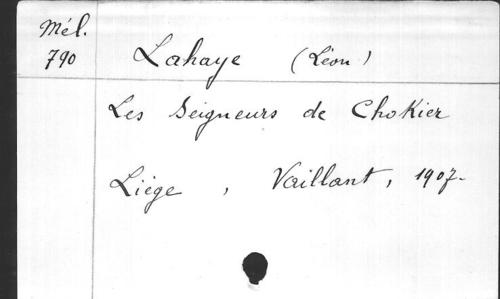 Mél.
790
Lahaye (Léon)
Les Seigneurs de Chokier
Liège, Vaillant, 1907-